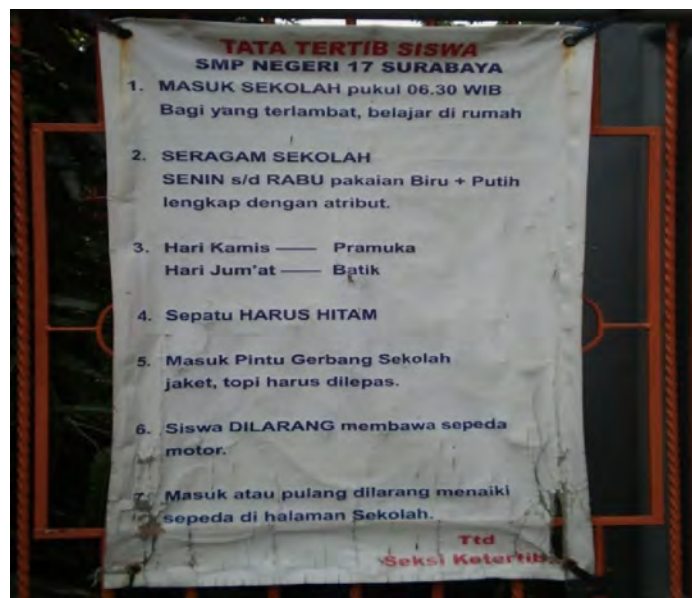 TATA TERTIB SISWA
SMP NEGERI 17 SURABAYA
1. MASUK SEKOLAH pukul 06.30 WIB
Bagi yang terlambat, belajar di rumah
2. SERAGAM SEKOLAH
SENIN s/d RABU pakaian Biru + Putih
lengkap dengan atribut.
3. Hari Kamis —— Pramuka
Hari Jum'at —— Batik
4. Sepatu HARUS HITAM
5. Masuk Pintu Gerbang Sekolah
jaket, topi harus dilepas.
6. Siswa DILARANG membawa sepeda
motor.
7. Masuk atau pulang dilarang menaiki
sepeda di halaman Sekolah.
Ttd
Seksi